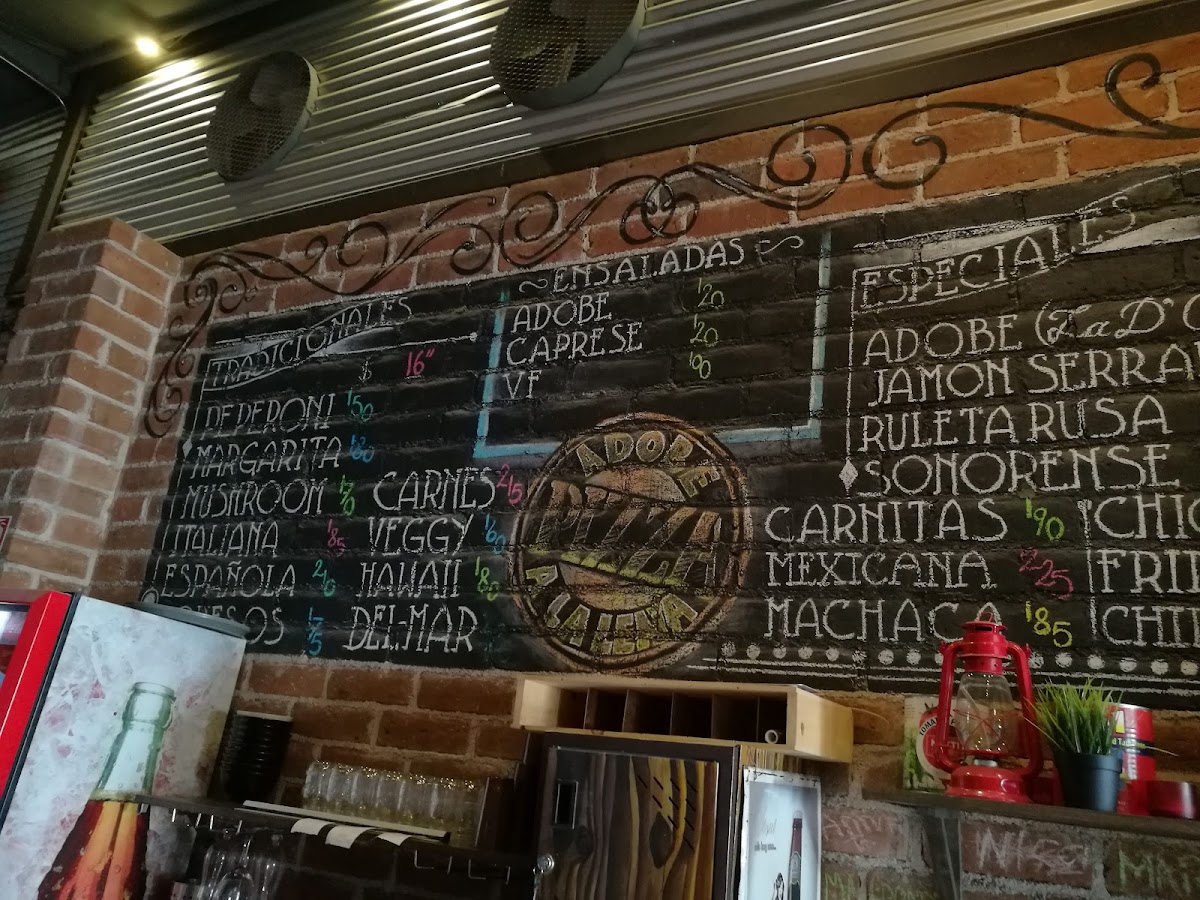 TRADICIONALES
$ 16"
PEPERONI 150
MARGARITA 180
MUSHROOM 170
ITALIANA 185
ESPAÑOLA 216
175
CARNES 215
VEGGY 160
HAWAII 180
DEL-MAR
~ENSALADAS~
ADOBE 120
CAPRESE 120
VF 100
ADOBE
PIZZA
A LA LEÑA
ESPECIALES
ADOBE (La D'
JAMON SERRA
RULETA RUSA
SONORENSE
CARNITAS 190
MEXICANA 225
MACHACA 185
CHI
FRI
CHI